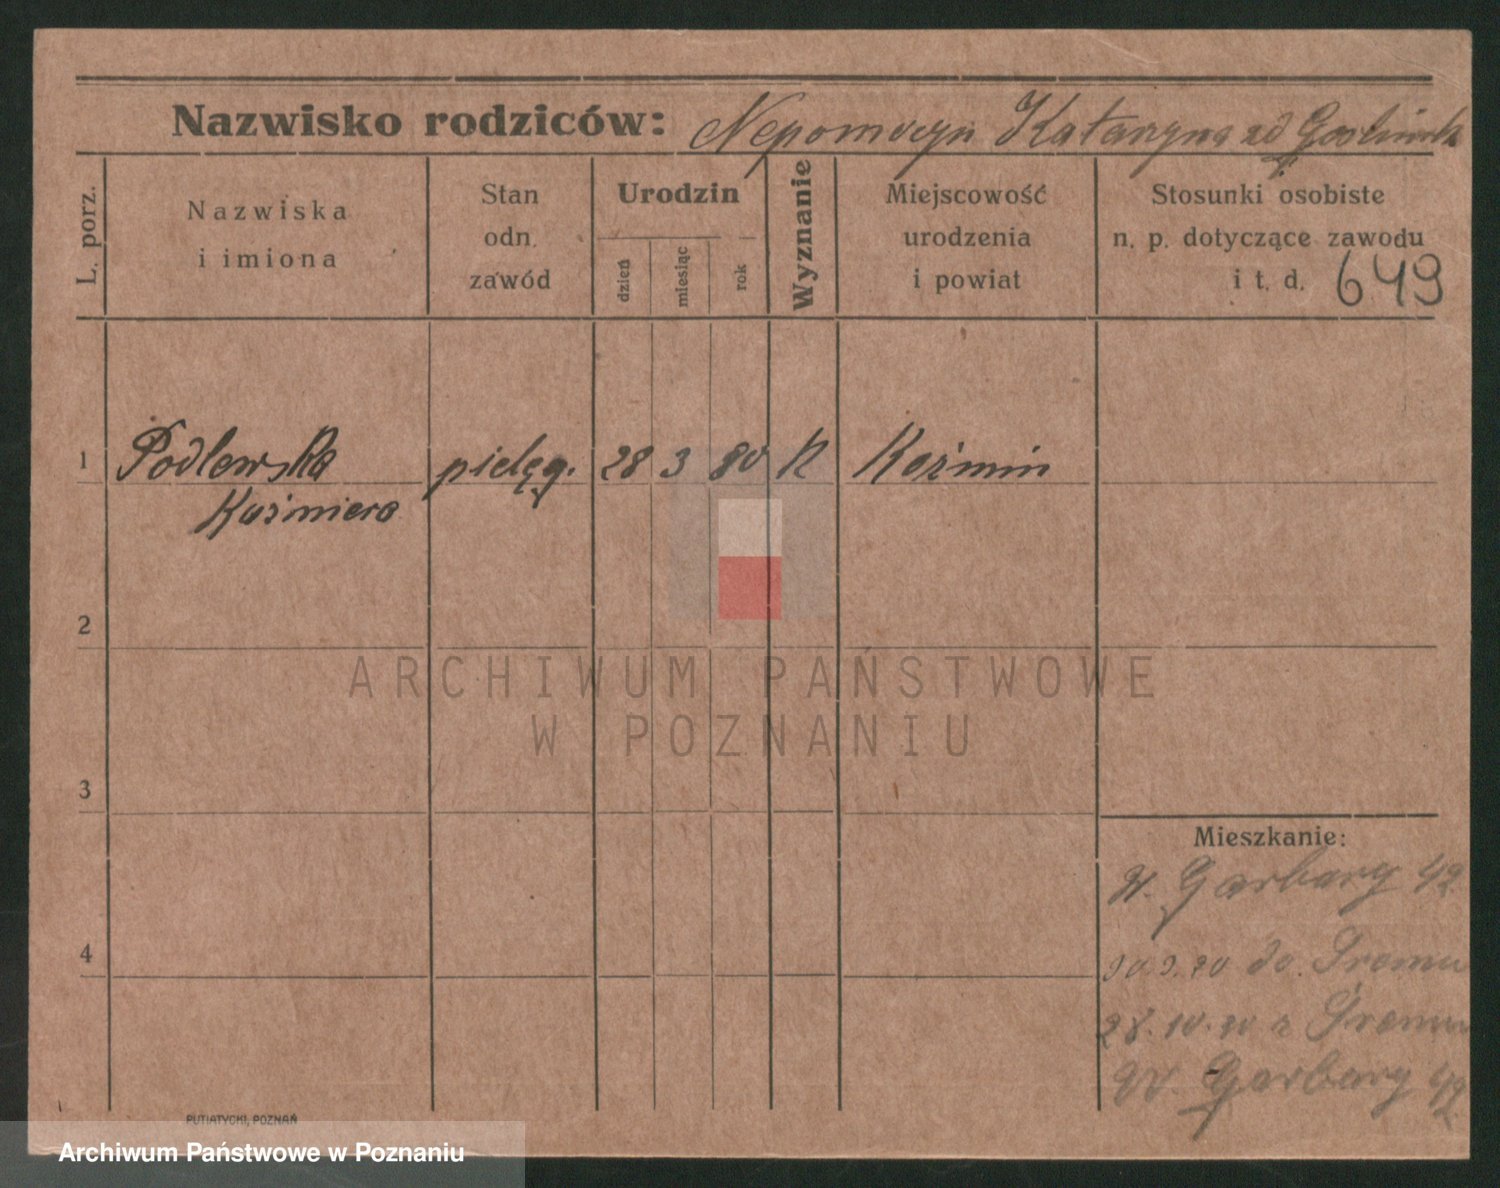 Nazwisko rodziców: Nepomucyn Katarzyna zd
L. porz.
Nazwiska
i imiona
Stan
odn.
zawód
Urodzin
dzień
miesiąc
rok
Wyznanie
Miejscowość
urodzenia
i powiat
Stosunki osobiste
n. p. dotyczące zawodu
i t. d. 649
1 Podlewska pielęg. 28 3 80 K Koźmin
Kaźmiera
2
ARCHIWUM PAŃSTWOWE
W POZNANIU
3
Mieszkanie:
W. Garbary 42
4
do Śremu
28.10.30 z Śremu
W. Garbary 42
PUTIATYCKI, POZNAŃ
Archiwum Państwowe w Poznaniu